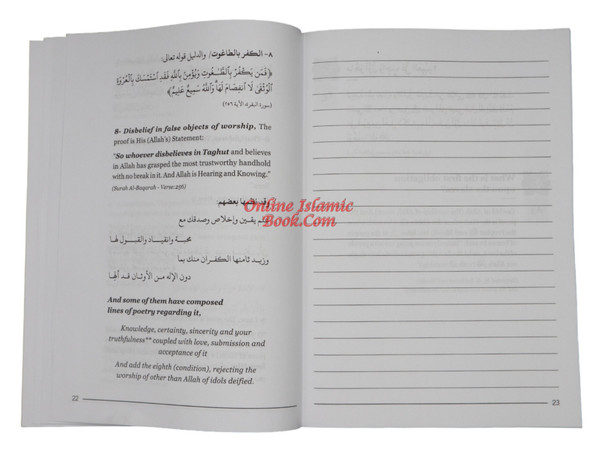 ٨- الكفر بالطاغوت/ والدليل قوله تعالى:
﴿فَمَن يَكْفُرْ بِالطَّاغُوتِ وَيُؤْمِنْ بِاللَّهِ فَقَدِ اسْتَمْسَكَ بِالْعُرْوَةِ
الْوُثْقَىٰ لَا انفِصَامَ لَهَا وَاللَّهُ سَمِيعٌ عَلِيمٌ﴾
(سورة البقرة، الآية ٢٥٦)
8- Disbelief in false objects of worship, The
proof is His (Allah's) Statement:
"So whoever disbelieves in Taghut and believes
in Allah has grasped the most trustworthy handhold
with no break in it. And Allah is Hearing and Knowing."
(Surah Al-Baqarah - Verse:256)
وقد نظمها بعضهم:
Online Islamic
Book.Com
علم يقين وإخلاص وصدقك مع
محبة وانقياد والقبول لها
وزيد ثامنها الكفران منك بما
دون الإله من الأوثان قد ألها
And some of them have composed
lines of poetry regarding it,
Knowledge, certainty, sincerity and your
truthfulness** coupled with love, submission and
acceptance of it
And add the eighth (condition), rejecting the
worship of other than Allah of idols deified.
22
23